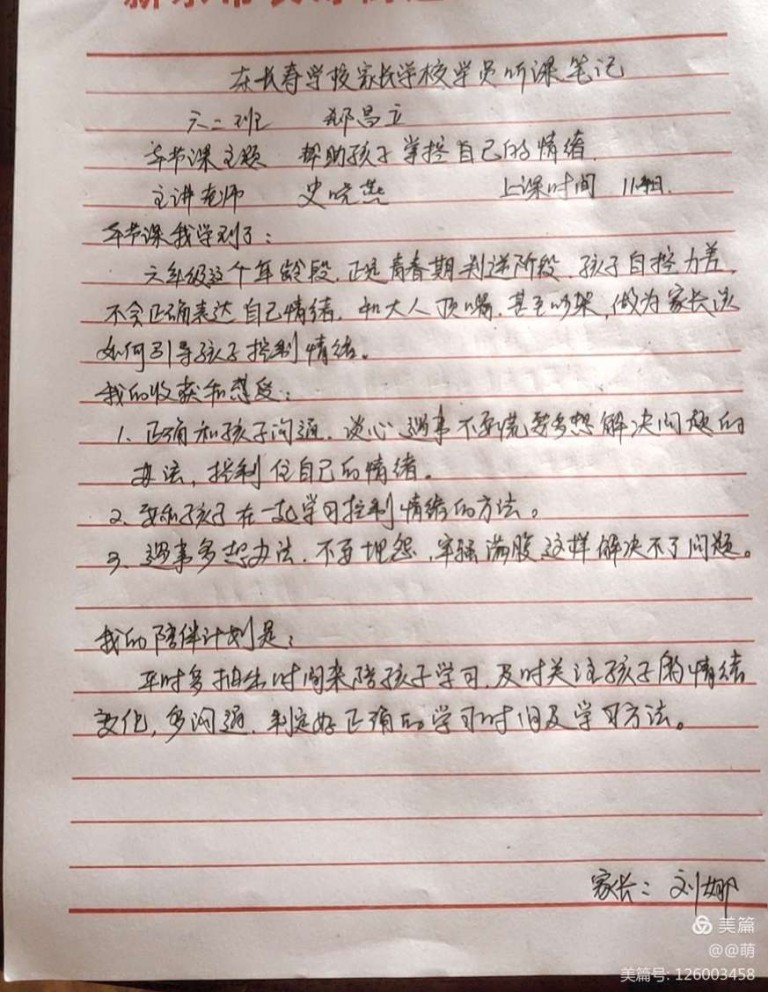 东长寿学校家长学校学员听课笔记
六二班 郑昌立
本节课主题 帮助孩子掌控自己的情绪.
主讲老师 史晓燕 上课时间
本节课我学到了:
六年级这个年龄段.正是青春期判逆阶段.孩子自控力差.
不会正确表达自己情绪.和大人顶嘴.甚至吵架,做为家长该
如何引导孩子控制情绪。
我的收获和感受:
1.正确和孩子沟通.谈心遇事不要慌要多想解决问题的
办法,控制住自己的情绪。
2.要和孩子在一起学习控制情绪的方法。
3.遇事多想办法.不要埋怨.牢骚满腹这样解决不了问题。
我的陪伴计划是:
平时多抽出时间来陪孩子学习.及时关注孩子的情绪
变化,多沟通.制定好正确的学习时间及学习方法。
家长:刘娜
美篇
@@萌
美篇号:126003458